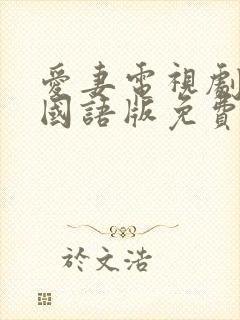 愛妻電視劇
國語版免費
於文浩